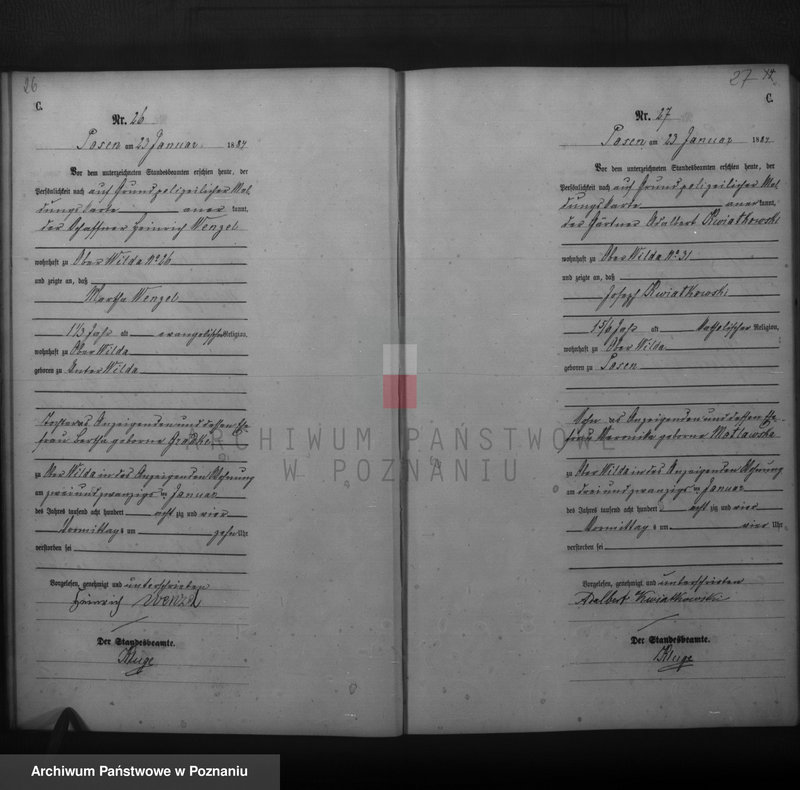 26
C.
Nr. 26
Posen am 23 Januar 1884
Vor dem unterzeichneten Standesbeamten erschien heute, der
Persönlichkeit nach auf Grund polizeilicher Mel
dungskarte anerkannt,
der Schaffner Heinrich Wenzel
wohnhaft zu Ober Wilda No 26
und zeigte an, daß
Martha Wenzel
1 1/3 Jahr alt evangelischer Religion,
wohnhaft zu Ober Wilda
geboren zu Unter Wilda
Tochter des Anzeigenden und dessen Ehe
frau Bertha geborene
zu Ober Wilda in des Anzeigenden Wohnung
am zweiundzwanzigsten Januar
des Jahres tausend acht hundert achtzig und vier
Vormittags um zehn Uhr
verstorben sei
Vorgelesen, genehmigt und unterschrieben
Heinrich Wenzel
Der Standesbeamte.
Kluge
27
C.
Nr. 27
Posen, am 23 Januar 1884
Vor dem unterzeichneten Standesbeamten erschien heute, der
Persönlichkeit nach auf Grund polizeilicher Mel
dungskarte anerkannt,
der Gärtner Adalbert Kwiatkowski
wohnhaft zu Ober Wilda No 31
und zeigte an, daß
Josef Kwiatkowski
1 5/6 Jahr alt katholischer Religion,
wohnhaft zu Ober Wilda
geboren zu Posen
Sohn des Anzeigenden und dessen Ehe-
frau Veronika geborene Matlawska
zu Ober Wilda in des Anzeigenden Wohnung
am dreiundzwanzigsten Januar
des Jahres tausend acht hundert achtzig und vier
Vormittags um vier Uhr
verstorben sei
Vorgelesen, genehmigt und unterschrieben
Adalbert Kwiatkowski
Der Standesbeamte.
Kluge
ARCHIWUM PAŃSTWOWE
W POZNANIU
Archiwum Państwowe w Poznaniu